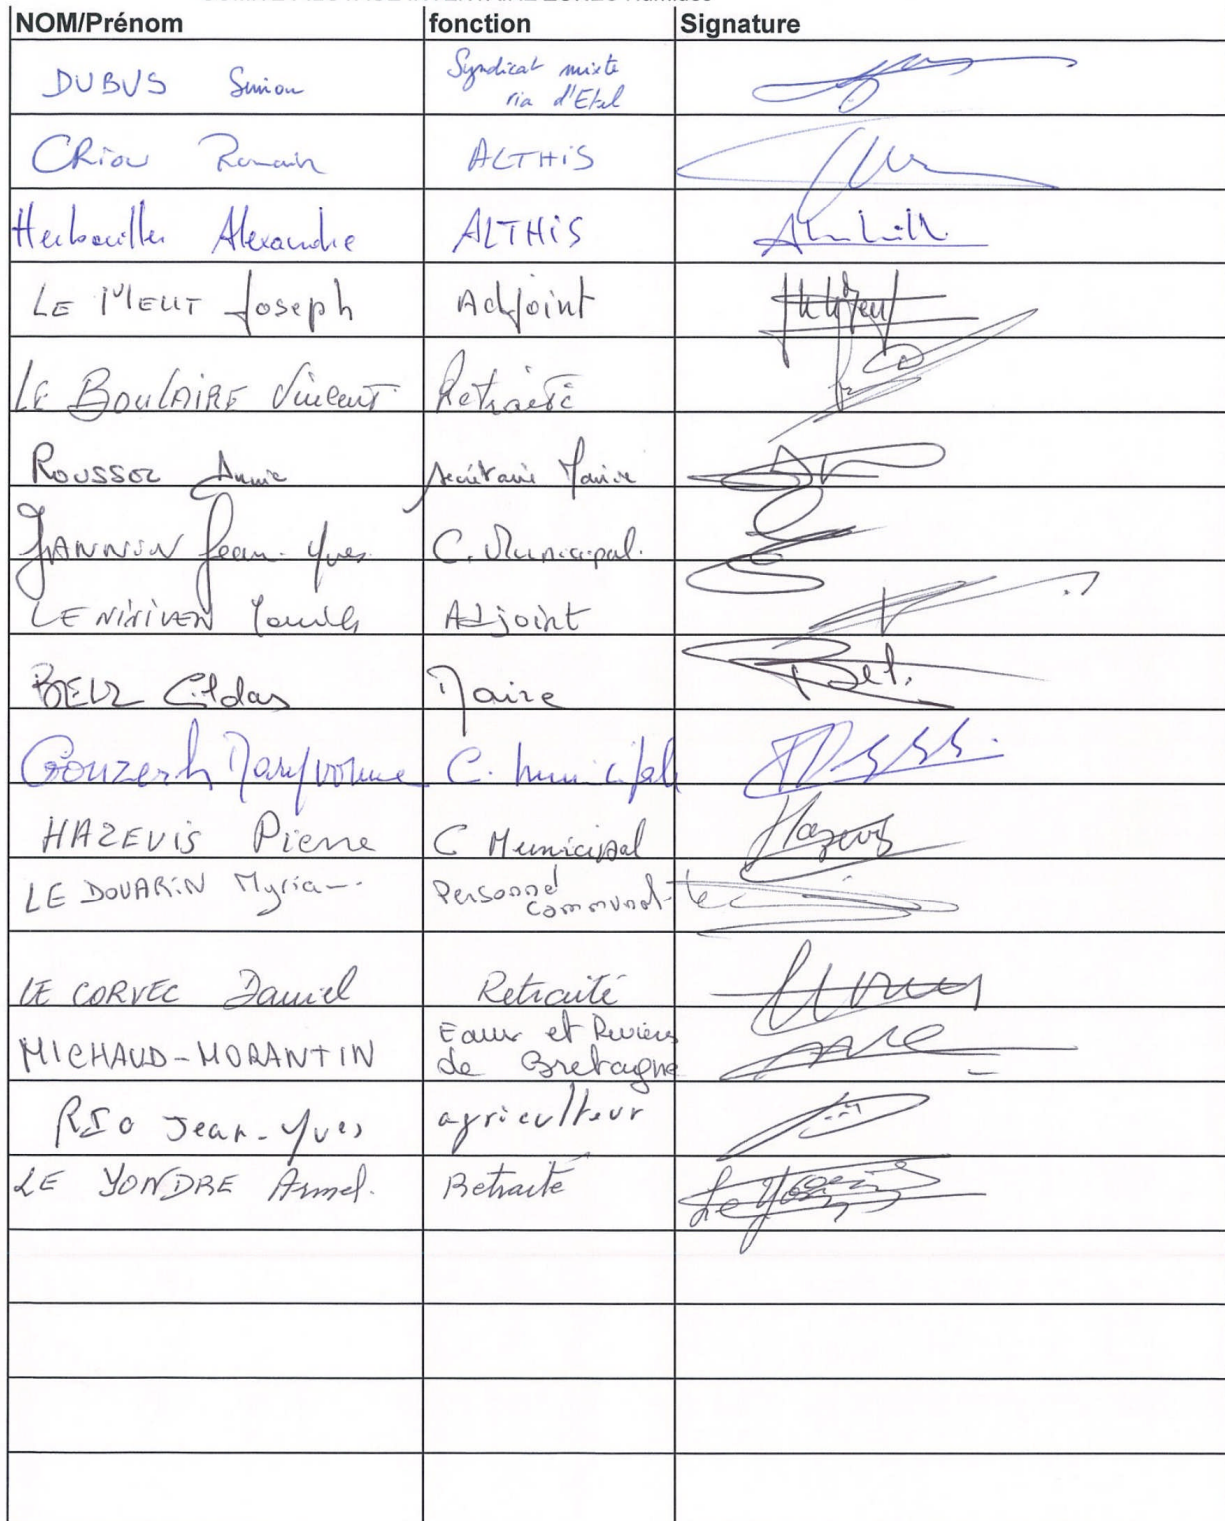 NOM/Prénom fonction Signature
DUBUS Simon Syndicat mixte
ria d'Etel
CRiou Romain ALTHiS
Herbouiller Alexandre ALTHiS
LE MEUT Joseph Adjoint
LE BOULAIRE Vincent Retraité
ROUSSEL Annie secrétaire Mairie
JANNIN Jean-Yves C. Municipal.
LE NINIVEN Adjoint
BELZ Gildas Maire
Gouzerh Maryvonne C. municipal
HAZEVIS Pierre C Municipal
LE DOUARIN Myriam Personnel
communal
LE CORVEC Daniel Retraité
MICHAUD-MORANTIN Eaux et Rivières
de Bretagne
RIO Jean-Yves agriculteur
LE YONDRE Armel. Retraité